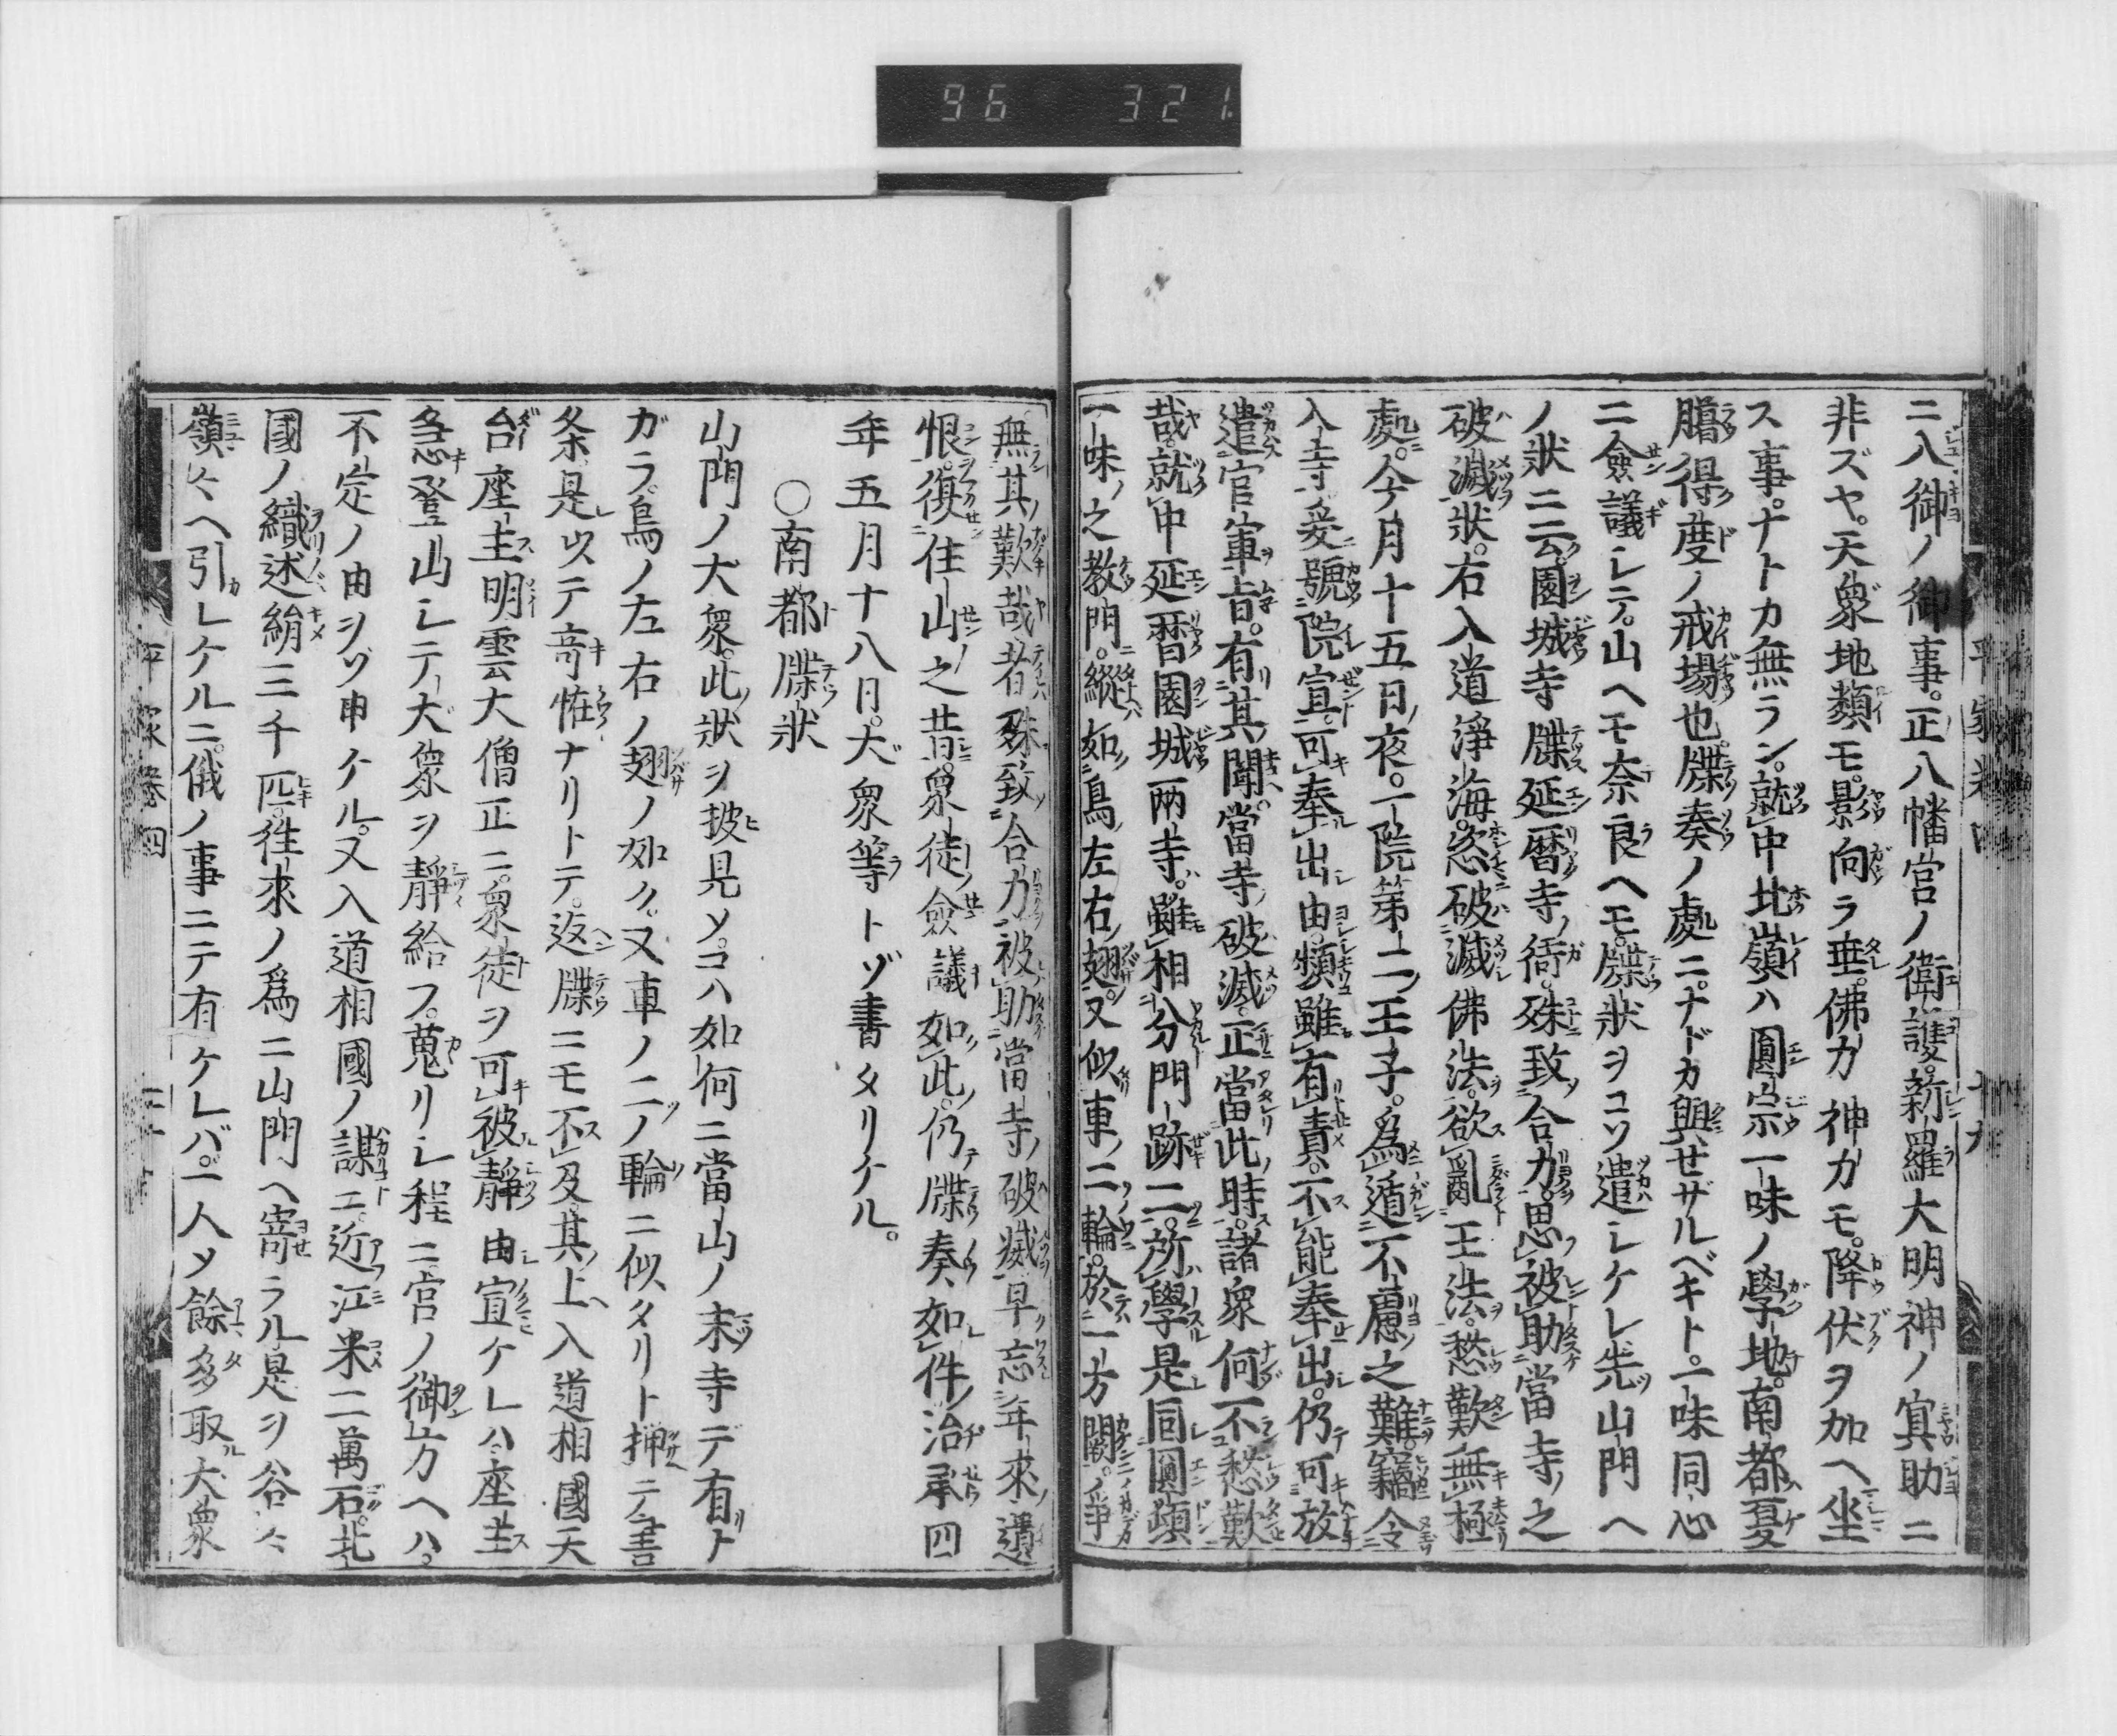 96 321
ニ入御ノ御事。正八幡宮ノ衛護。新羅大明神ノ冥助ニ
非ズヤ。天衆地類モ。影向ヲ垂。佛力神力モ。降伏ヲ加ヘ坐
ス事。ナトカ無ラン。就中北嶺ハ圓宗一味ノ學地。南都夏
臈得度ノ戒場也。牒奏ノ處ニ。ナドカ與セザルベキト。一味同心
ニ僉議シテ。山ヘモ奈良ヘモ。牒狀ヲコソ遣シケレ先山門ヘ
ノ狀ニ云。園城寺牒延暦寺ノ衙。殊致合力。思被助當寺ノ之
破滅狀。右入道淨海。恣破滅佛法。欲亂王法。愁歎無極
處。今月十五日ノ夜。一院第二ノ王子。爲遁不慮之難。竊令
入寺。爰號院宣。可奉出由。頻雖有責。不能奉出。仍可放
遣官軍旨。有其聞。當寺ノ破滅。正當此時。諸衆何不愁歎
哉。就中延暦園城兩寺。雖相分門跡二。所學是同圓頓
一味ノ之教門。縱如鳥左右翅。又似車ノ二輪。於一方闕。爭
無其歎哉者。殊致合力。被助當寺ノ破滅。早忘年來ノ遺
恨。復住山之昔。衆徒ノ僉議如此。仍牒奏如件。治承四
年五月十八日。大衆等トゾ書タリケル。
〇南都牒狀
山門ノ大衆。此狀ヲ披見メ。コハ如何ニ當山ノ末寺デ有ト
ガラ。鳥ノ左右ノ翅ノ如ク。又車ノ二ノ輪ニ似タリト押テ書
条。是以テ竒恠ナリトテ。返牒ニモ不及。其上入道相國天
台座主明雲大僧正ニ。衆徒ヲ可被靜由宣ケレハ。座主
急登山シテ。大衆ヲ靜給フ。蒐リシ程ニ宮ノ御方ヘハ。
不定ノ由ヲゾ申ケル。又入道相國ノ謀ニ。近江米二萬石。北
國ノ織述絹三千匹。往來ノ爲ニ山門ヘ寄ラル。是ヲ谷々
嶺々ヘ引レケルニ。俄ノ事ニテ有ケレバ。一人メ餘多取大衆
平家巻四